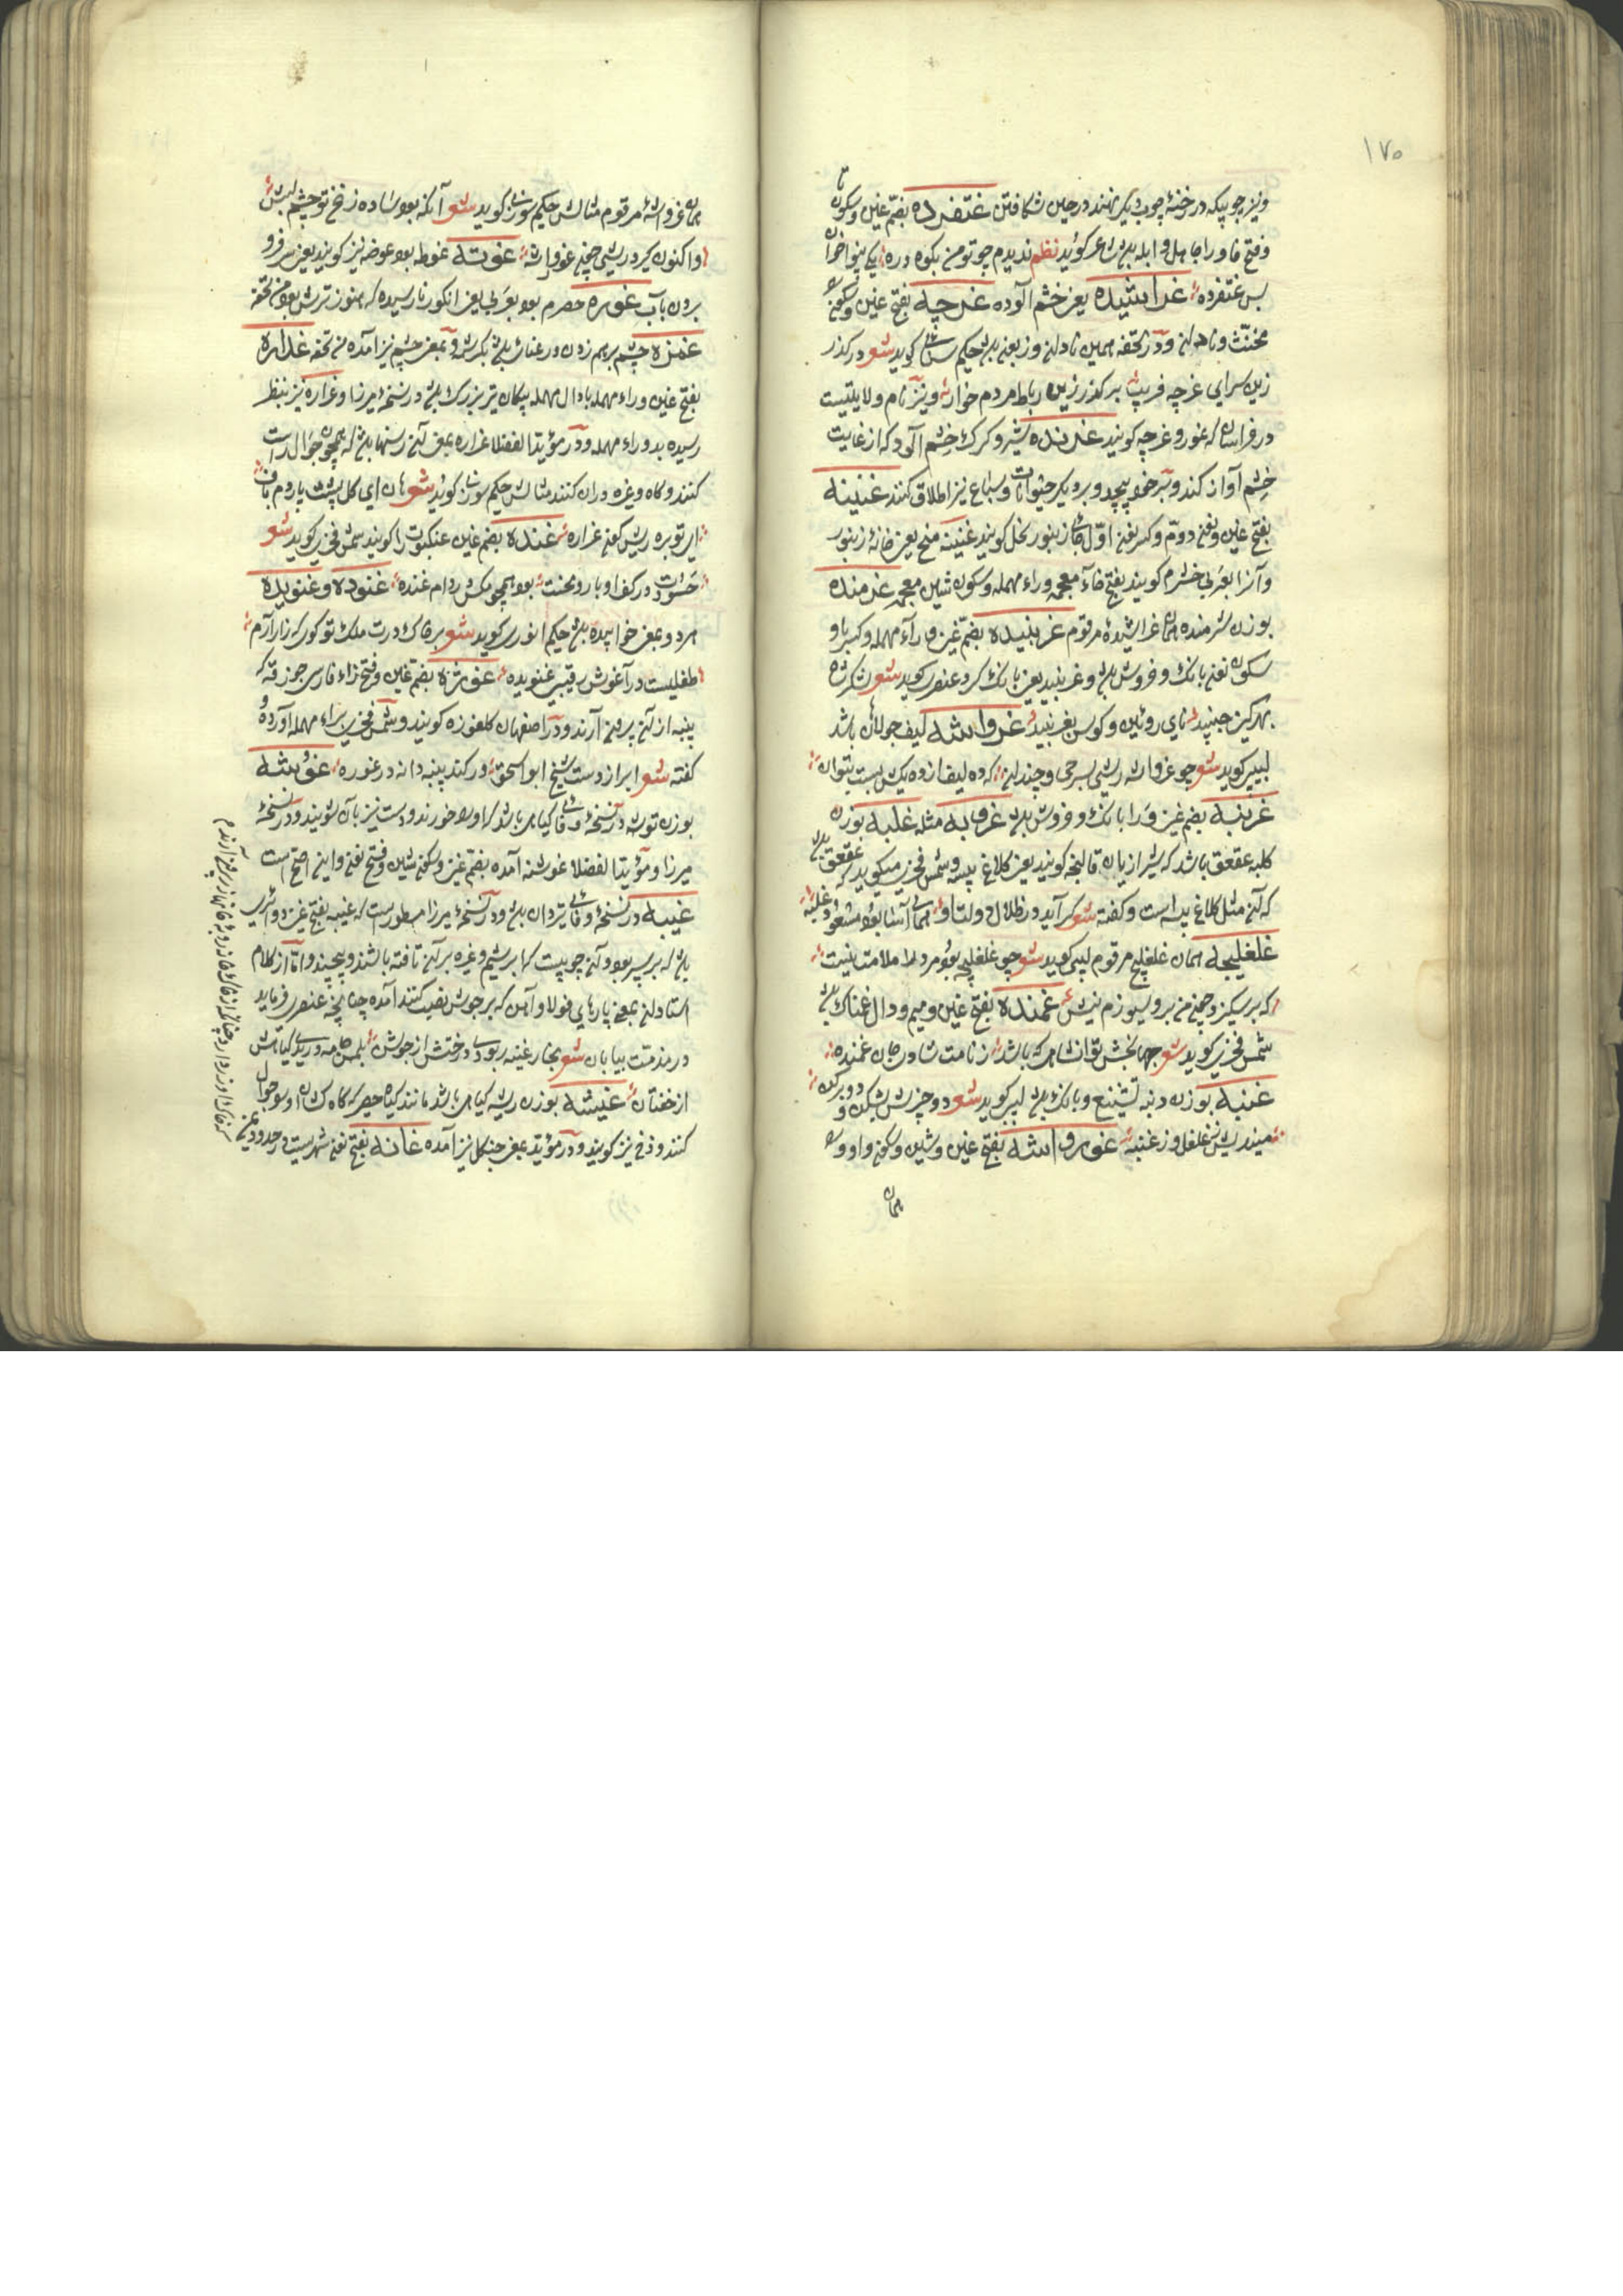 ۱۷۰
ونیز چوبیکه در رخنهٔ چوب دیگر نهند در حین شکافتن غتفره بضم غین و سکون تا
و فتح فا و را جاهل و ابله باشد شاعر کوید نظم ندیدم چو تو من بکوه و دره یکی
بس غتفره غراشیده یعنی خشم آلوده غرچه بفتح غین و سکون را
مخنث و نادان و در تحفه همین نادان و زبون باشد حکیم سنایی کوید شعر در کذر
زین سرای غرچه فریب بر کذر زین رباط مردم خوار و نیز نام ولایتیست
در خراسان که غور و غرچه کویند غرنده شیر و کرک خشم آلود که از غایت
خشم آواز کند و بر خود پیچد و بر دیگر حیوانات و سباع نیز اطلاق کنند غنینه
بفتح غین و نون دوم و کسر نون اول جای زنبور نحل کویند غنینه منج یعنی خانهٔ زنبور
و آنرا بعربی خشرم کویند بفتح خاء معجمه و راء مهمله و سکون شین معجمه غرمنده
بوزن شرمنده همان غراشیدهٔ مرقوم غرنبیده بضم غین و راء مهمله و کسر با و
سکون نون بانک و خروش باشد و غرنبید یعنی بانک کرد عنصری کوید شعر
بهر کین جنبید نای روئین و کوس بغرنبید غرواشه لیف جولاهان باشد
لبیبی کوید شعر چو غرواشه ریشی بسرخی و چندان که ده لیف از ده یکش بست بتوان
غرنبه بضم غین و را بانک و خروش باشد غروبه مثله غلبه بوزن
کلبه عقعق باشد که شیرازیان قالنجه کویند یعنی کلاغ پیسه و شمس فخری میکوید که عقعق
که آن مثل کلاغ پیسه است و کفته شعر کر آید در ظلال دولت او همای آشیان
غلغلیجه همان غلغلیج مرقوم لبیبی کوید شعر چو غلغلیچه بود مرد را ملامت نیست
که بر سکیزد چون من برو سپوزم نیش غمنده بفتح غین و میم و دال غمناک باشد
شمس فخری کوید شعر جهانبخش توانشاهی که باشد ز نامت شاد و جان غمنده
غنبه بوزن دنبه تشنیع و بانک باشد لبیبی کوید شعر دو چیزش بشکن و دو برکن
مندیش ز غلغل و ز غنبه غورواشه بفتح غین و شین و سکون واو و را
همان
همان غرواشهٔ مرقوم مثالش حکیم سوزنی کوید شعر آنکه بود ساده زنخ
واکنون کیرد ریشی چون غورواشه غوته غوطه بود و غوضه نیز کویند یعنی سر فرو
بردن بآب غوره حصرم بود بعربی یعنی انکور نارسیده که هنوز ترش بود من تحفه
غمزه چشم بر هم زدن و رعنائی باشد بکرشمه و بمعنی چشم نیز آمده من تحفه غداره
بفتح غین و راء مهمله با دال مهمله پیکان تیر بزرک باشد در نسخهٔ میرزا و غراره نیز بنظر
رسیده بدو راء مهمله و در مؤید الفضلا غراره بمعنی آن رسنها باشد که همچون جوال راست
کنند و کاه و غیره در آن کنند مثالش حکیم سوزنی کوید شعر هان ای کل پشت پاردم باف
ای توبره ریش کون غراره غنده بضم غین عنکبوت را کویند شمس فخری کوید شعر
حسود در کف او بار و محنت بود همچو مکس در دام غنده غنوده و غنویده
هر دو بمعنی خوابیده باشد حکیم انوری کوید شعر بر خاک درت ملک تو کوئی که ز آرام
طفلیست در آغوش رقیبی غنویده غوزه بضم غین و فتح زاء فارسی جوزقه که
پنبه از آن بیرون آرند و در اصفهان کلغوزه کویند و شمس فخری براء مهمله آورده و
کفته شعر ابر از دست شیخ ابو اسحق ور کند پنبه دانه در غوره غوشه
بوزن توشه در نسخهٔ وفائی کیاهی باشد که او را خورند و دست نیز بآن شویند و در نسخهٔ
میرزا و مؤید الفضلا غوشنه آمده بضم غین و سکون شین و فتح نون و این اصح است
غیبه در نسخهٔ وفائی تیردان باشد و در نسخهٔ میرزا مسطورست که غیبه بفتح غین دو
باشد که بر سپر بود و آن چوبیست که ابریشم و غیره بر آن تافته باشند و پیچند و اما از کلام
استادان بمعنی پارهای فولاد و آهن که بر جوشن نصب کنند آمده چنانچه عنصری فرماید
در مذمت بیابان شعر بخار غیبه ربودی درختش از جوشن
از خفتان غیشه بوزن ریشه کیاهی باشد مانند کیاه حصیر که کاه کشان از او جوال
کنند و ذخ نیز کویند و در مؤید بمعنی جنکل نیز آمده غانه بفتح نون شهریست در حدود یمن